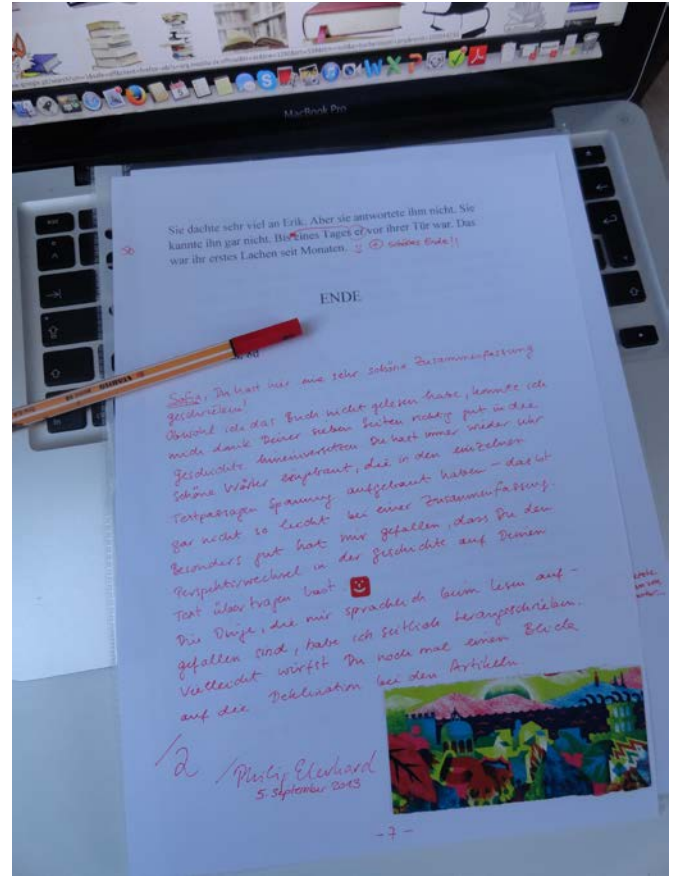 MacBook Pro
Sie dachte sehr viel an Erik. Aber sie antwortete ihm nicht. Sie
kannte ihn gar nicht. Bis eines Tages er vor ihrer Tür war. Das
war ihr erstes Lachen seit Monaten. :) + schönes Ende!!
Sb
ENDE
Sofia, Du hast hier eine sehr schöne Zusammenfassung
geschrieben!
Obwohl ich das Buch nicht gelesen habe, konnte ich
mich dank Deiner sieben Seiten richtig gut in die
Geschichte hineinversetzen. Du hast immer wieder sehr
schöne Wörter eingebaut, die in den einzelnen
Textpassagen Spannung aufgebaut haben – das ist
gar nicht so leicht bei einer Zusammenfassung.
Besonders gut hat mir gefallen, dass Du den
Perspektivwechsel in der Geschichte auf Deinen
Text übertragen hast
Die Dinge, die mir sprachlich beim Lesen auf-
gefallen sind, habe ich seitlich herangeschrieben.
Vielleicht wirfst Du noch mal einen Blick
auf die Deklination bei den Artikeln.
/2 /Philip Ekerhard
5. September 2013
- 7 -